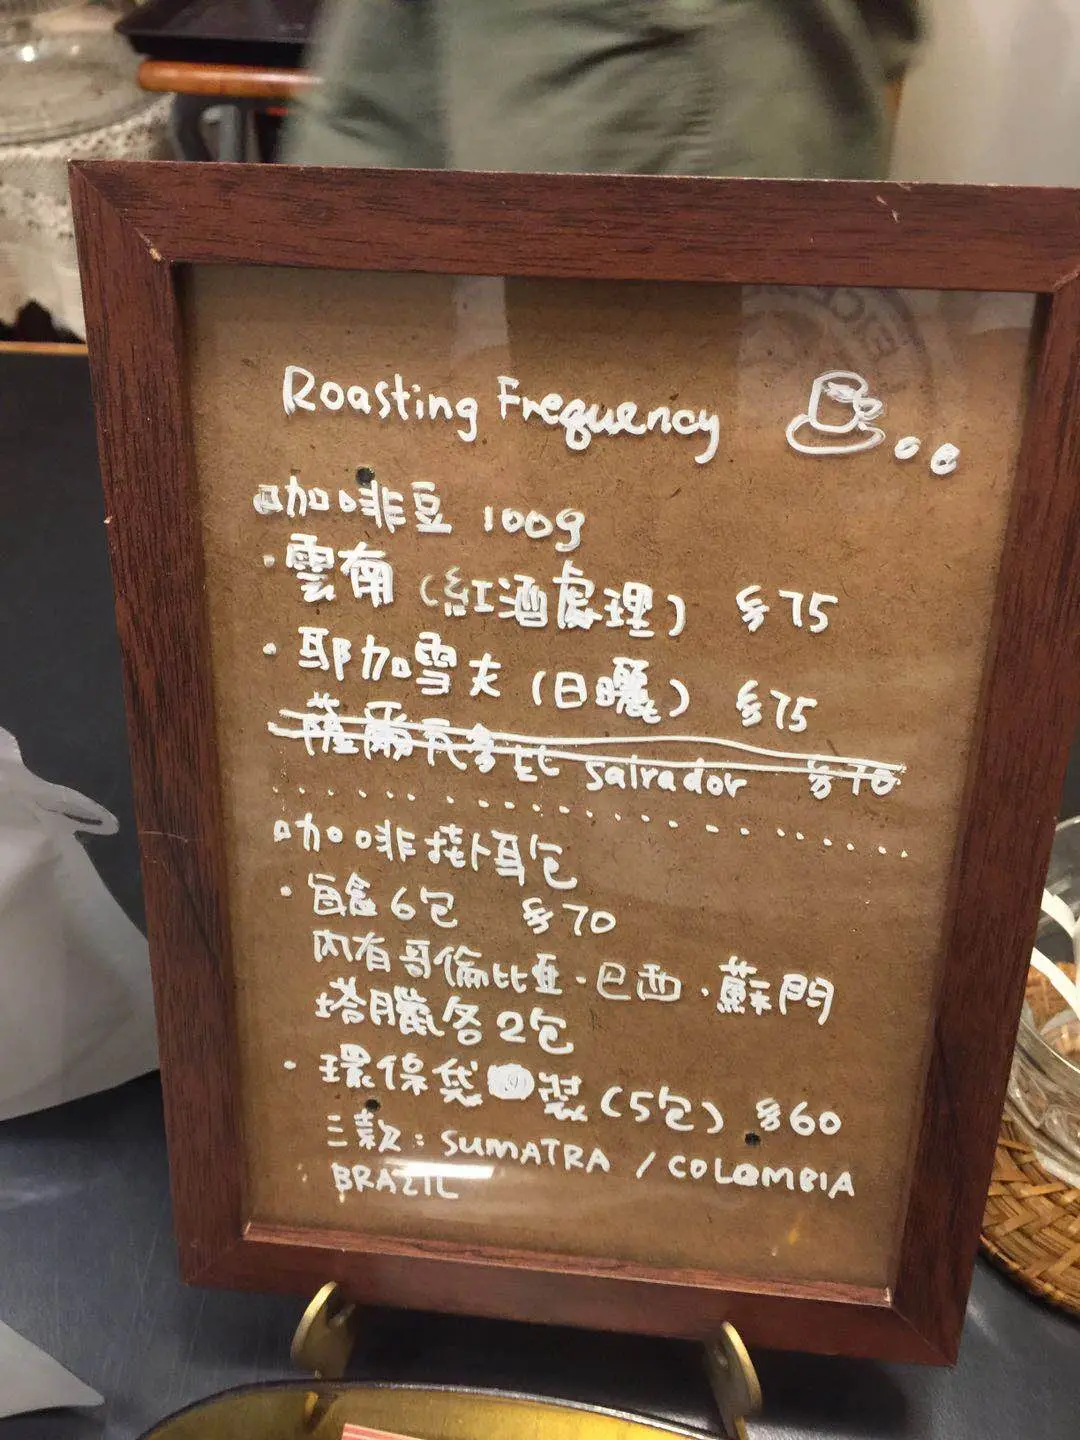 Roasting Frequency
咖啡豆 100g
·雲南(紅酒處理) $75
·耶加雪夫(日曬) $75
薩爾瓦多 Salvador $70
咖啡掛耳包
·每盒6包 $70
內有哥倫比亞·巴西·蘇門
塔臘各2包
·環保袋裝(5包) $60
三款: SUMATRA / COLOMBIA
BRAZIL